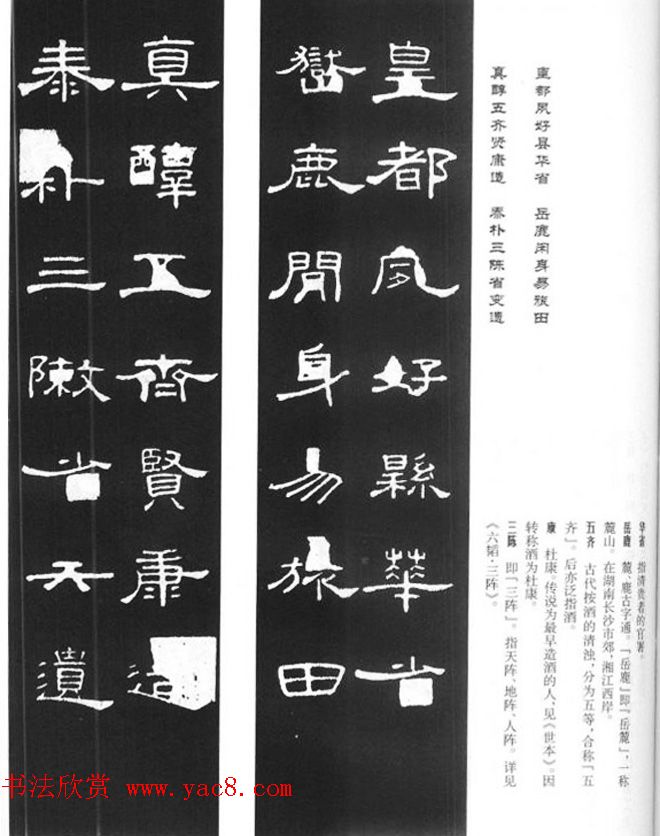 皇都夙好县华省　岳鹿闲身易旅田
真醇五齐贤康造　泰朴三陈省变遗
华省　指清贵者的官署。
岳鹿　麓、鹿古字通。「岳鹿」即「岳麓」，一称
麓山。在湖南长沙市郊，湘江西岸。
五齐　古代按酒的清浊，分为五等，合称「五
齐」。后亦泛指酒。
康　杜康。传说为最早造酒的人，见《世本》。因
转称酒为杜康。
三陈　即「三阵」。指天阵、地阵、人阵。详见
《六韬·三阵》。
皇都夙好縣華省
嶽鹿閒身易旅田
真醇五齊賢康造
泰朴三敶省遺
书法欣赏 www.yac8.com